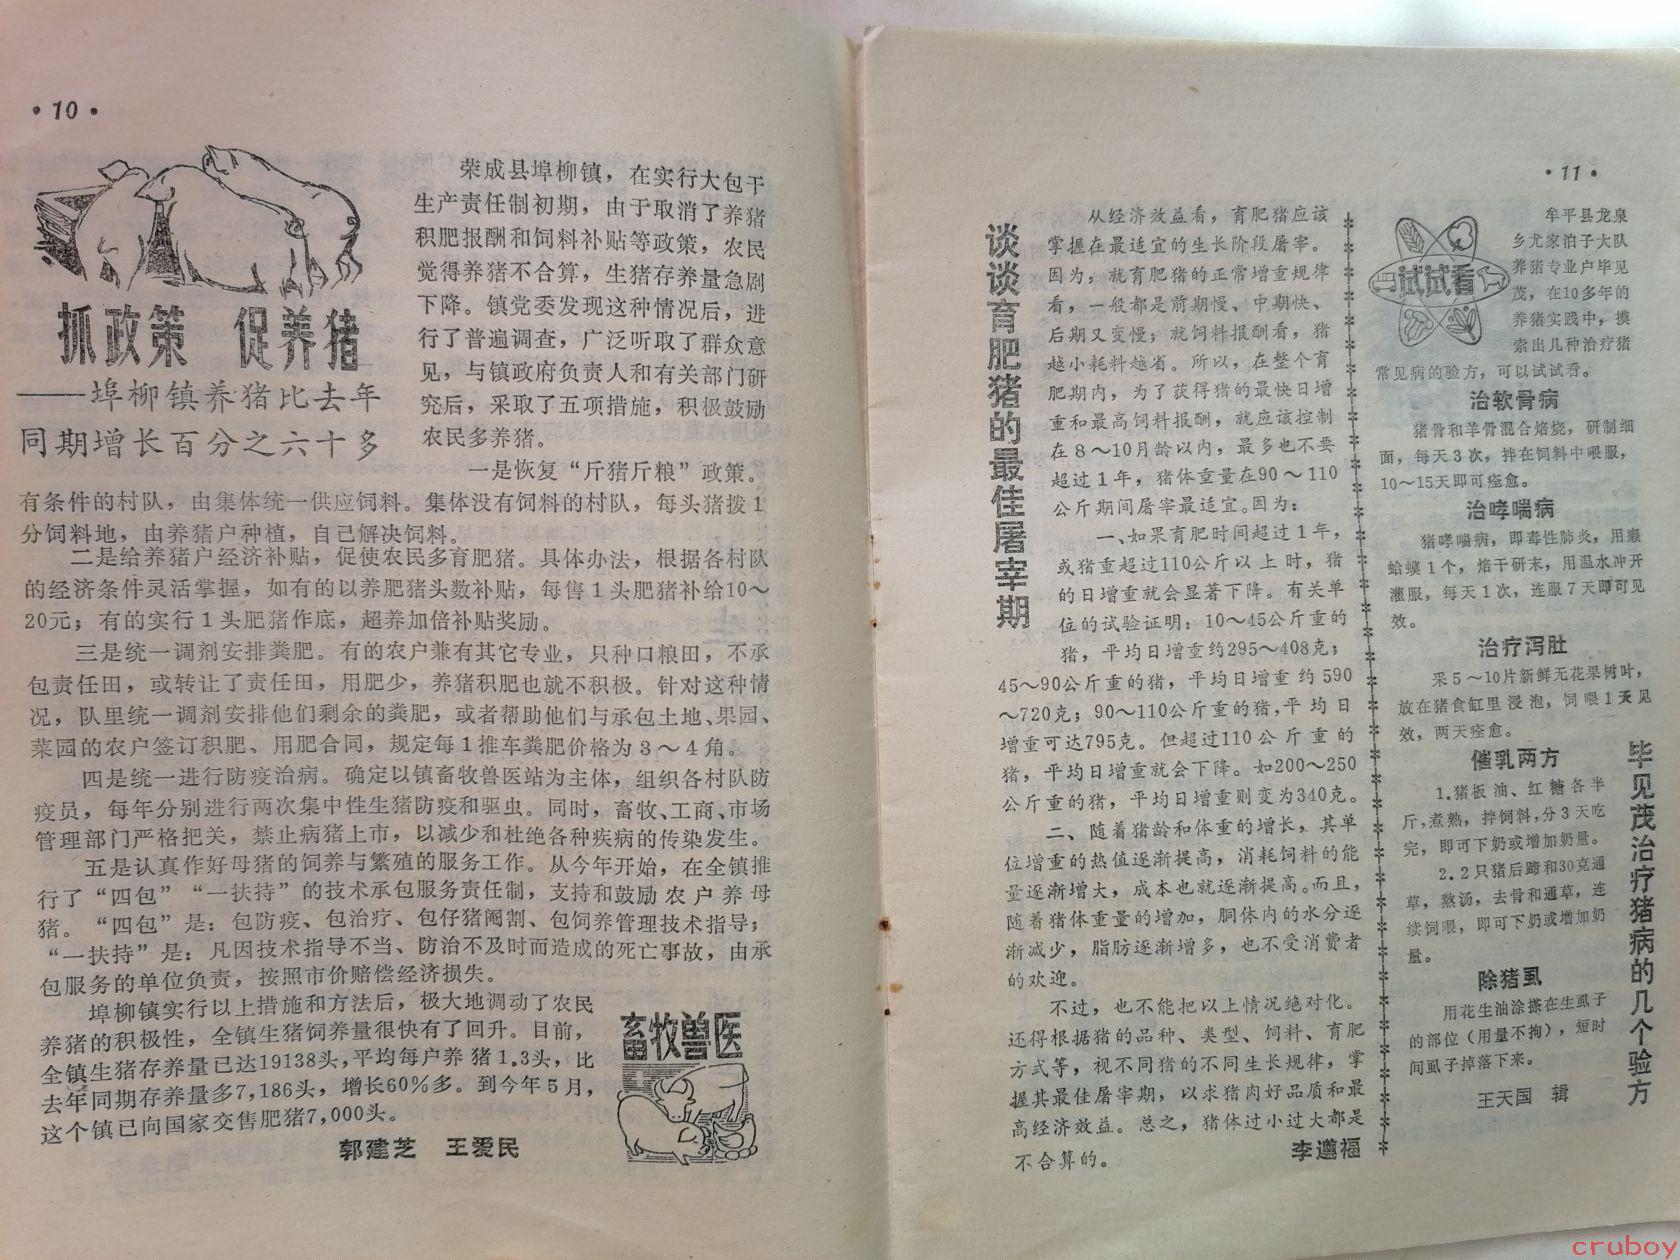 ·10·
抓政策 促养猪
——埠柳镇养猪比去年
同期增长百分之六十多
荣成县埠柳镇，在实行大包干
生产责任制初期，由于取消了养猪
积肥报酬和饲料补贴等政策，农民
觉得养猪不合算，生猪存养量急剧
下降。镇党委发现这种情况后，进
行了普遍调查，广泛听取了群众意
见，与镇政府负责人和有关部门研
究后，采取了五项措施，积极鼓励
农民多养猪。
一是恢复“斤猪斤粮”政策。
有条件的村队，由集体统一供应饲料。集体没有饲料的村队，每头猪拨1
分饲料地，由养猪户种植，自己解决饲料。
二是给养猪户经济补贴，促使农民多育肥猪。具体办法，根据各村队
的经济条件灵活掌握，如有的以养肥猪头数补贴，每售1头肥猪补给10～
20元；有的实行1头肥猪作底，超养加倍补贴奖励。
三是统一调剂安排粪肥。有的农户兼有其它专业，只种口粮田，不承
包责任田，或转让了责任田，用肥少，养猪积肥也就不积极。针对这种情
况，队里统一调剂安排他们剩余的粪肥，或者帮助他们与承包土地、果园、
菜园的农户签订积肥、用肥合同，规定每1推车粪肥价格为3～4角。
四是统一进行防疫治病。确定以镇畜牧兽医站为主体，组织各村队防
疫员，每年分别进行两次集中性生猪防疫和驱虫。同时，畜牧、工商、市场
管理部门严格把关，禁止病猪上市，以减少和杜绝各种疾病的传染发生。
五是认真作好母猪的饲养与繁殖的服务工作。从今年开始，在全镇推
行了“四包”“一扶持”的技术承包服务责任制，支持和鼓励农户养母
猪。“四包”是：包防疫、包治疗、包仔猪阉割、包饲养管理技术指导；
“一扶持”是：凡因技术指导不当、防治不及时而造成的死亡事故，由承
包服务的单位负责，按照市价赔偿经济损失。
埠柳镇实行以上措施和方法后，极大地调动了农民
养猪的积极性，全镇生猪饲养量很快有了回升。目前，
全镇生猪存养量已达19138头，平均每户养猪1.3头，比
去年同期存养量多7,186头，增长60％多。到今年5月，
这个镇已向国家交售肥猪7,000头。
郭建芝 王爱民
畜牧兽医
·11·
谈谈育肥猪的最佳屠宰期
从经济效益看，育肥猪应该
掌握在最适宜的生长阶段屠宰。
因为，就育肥猪的正常增重规律
看，一般都是前期慢、中期快、
后期又变慢；就饲料报酬看，猪
越小耗料越省。所以，在整个育
肥期内，为了获得猪的最快日增
重和最高饲料报酬，就应该控制
在8～10月龄以内，最多也不要
超过1年，猪体重量在90～110
公斤期间屠宰最适宜。因为：
一、如果育肥时间超过1年，
或猪重超过110公斤以上时，猪
的日增重就会显著下降。有关单
位的试验证明：10～45公斤重的
猪，平均日增重约295～408克；
45～90公斤重的猪，平均日增重约590
～720克；90～110公斤重的猪，平均日
增重可达795克。但超过110公斤重的
猪，平均日增重就会下降。如200～250
公斤重的猪，平均日增重则变为340克。
二、随着猪龄和体重的增长，其单
位增重的热值逐渐提高，消耗饲料的能
量逐渐增大，成本也就逐渐提高。而且，
随着猪体重量的增加，胴体内的水分逐
渐减少，脂肪逐渐增多，也不受消费者
的欢迎。
不过，也不能把以上情况绝对化。
还得根据猪的品种、类型、饲料、育肥
方式等，视不同猪的不同生长规律，掌
握其最佳屠宰期，以求猪肉好品质和最
高经济效益。总之，猪体过小过大都是
不合算的。
李遵福
试试看
牟平县龙泉
乡尤家泊子大队
养猪专业户毕见
茂，在10多年的
养猪实践中，摸
索出几种治疗猪
常见病的验方，可以试试看。
治软骨病
猪骨和羊骨混合焙烧，研制细
面，每天3次，拌在饲料中喂服，
10～15天即可痊愈。
治哮喘病
猪哮喘病，即毒性肺炎，用癞
蛤蟆1个，焙干研末，用温水冲开
灌服，每天1次，连服7天即可见
效。
治疗泻肚
采5～10片新鲜无花果树叶，
放在猪食缸里浸泡，饲喂1天见
效，两天痊愈。
催乳两方
1.猪板油、红糖各半
斤，煮熟，拌饲料，分3天吃
完，即可下奶或增加奶量。
2.2只猪后蹄和30克通
草，熬汤，去骨和通草，连
续饲喂，即可下奶或增加奶
量。
除猪虱
用花生油涂搽在生虱子
的部位（用量不拘），短时
间虱子掉落下来。
王天国 辑
毕见茂治疗猪病的几个验方
cruboy